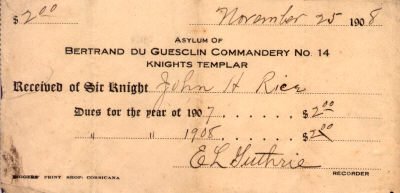 $2.00 November 25 1908
ASYLUM OF
BERTRAND DU GUESCLIN COMMANDERY NO. 14
KNIGHTS TEMPLAR
Received of Sir Knight John H Rice
Dues for the year of 1907 . . . . . . . $2.00
" " " 1908 . . . . . . . $2.00
E L Guthrie
RECORDER
BIGGERS' PRINT SHOP: CORSICANA